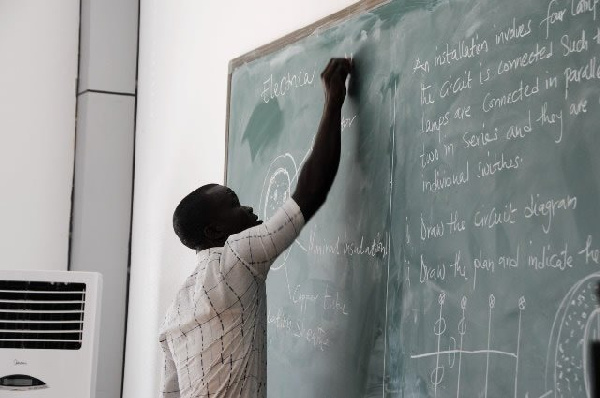 Electrical
Mineral insulation
Copper tube
Sheath
An installation involves four lamps
the circuit is connected such
lamps are connected in parallel
two in series and they are
individual switches.
i Draw the circuit diagram
ii Draw the plan and indicate the